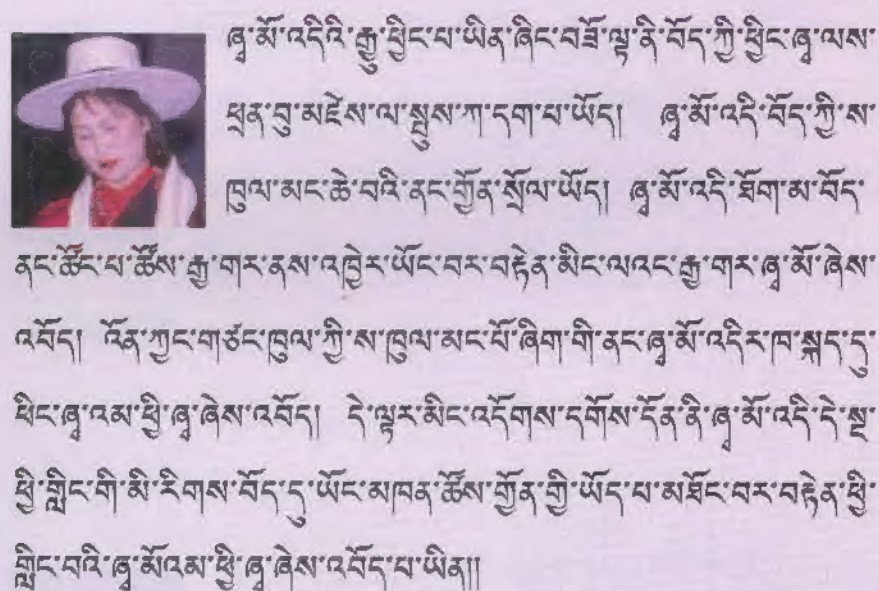 ཞྭ་མོ་འདིའི་རྒྱུ་ཕྱིང་པ་ཡིན་ཞིང་བཟོ་ལྟ་ནི་བོད་ཀྱི་ཕྱིང་ཞྭ་ལས་
ཕྲན་བུ་མཛེས་ལ་སྤུས་ཀ་དག་པ་ཡོད། ཞྭ་མོ་འདི་བོད་ཀྱི་ས་
ཁུལ་མང་ཆེ་བའི་ནང་གྱོན་སྲོལ་ཡོད། ཞྭ་མོ་འདི་ཐོག་མ་བོད་
ནང་ཚོང་པ་ཚོས་རྒྱ་གར་ནས་འཁྱེར་ཡོང་བར་བརྟེན་མིང་ལའང་རྒྱ་གར་ཞྭ་མོ་ཞེས་
འབོད། འོན་ཀྱང་གཙང་ཁུལ་ཀྱི་ས་ཁུལ་མང་པོ་ཞིག་གི་ནང་ཞྭ་མོ་འདིར་ཁ་སྐད་དུ་
ཕིང་ཞྭ་འམ་ཕྱི་ཞྭ་ཞེས་འབོད། དེ་ལྟར་མིང་འདོགས་དགོས་དོན་ནི་ཞྭ་མོ་འདི་དེ་སྔ་
ཕྱི་གླིང་གི་མི་རིགས་བོད་དུ་ཡོང་མཁན་ཚོས་གྱོན་གྱི་ཡོད་པ་མཐོང་བར་བརྟེན་ཕྱི་
གླིང་བའི་ཞྭ་མོའམ་ཕྱི་ཞྭ་ཞེས་འབོད་པ་ཡིན།།